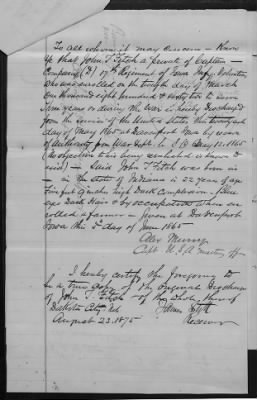 To all whom it may concern - Know
ye that John T. Fitch a private of Captain -
Company (D) 17th Regiment of Iowa Infy. Volunteers
who was enrolled on the twelfth day of March
one thousand eight hundred and sixty two to serve
three years or during the war is hereby Discharged
from the service of the United States this
day of May 1865 at Davenport Iowa by reason
of authority from War Dept.
(No objection to his being reenlisted is known to
exist) - Said John T. Fitch was born in
in the State of Indiana is 22 years of age
five feet inches high Dark Complexion - Blue
eyes Dark Hair & by occupation when en
rolled a farmer - Given at Davenport
Iowa this 5" day of June 1865
Alex Murray
Capt U.S.A.
I hereby certify the foregoing to
be a true copy of the original Discharge
of John T. Fitch - of the whole thereof
City
August 23. 1875
James